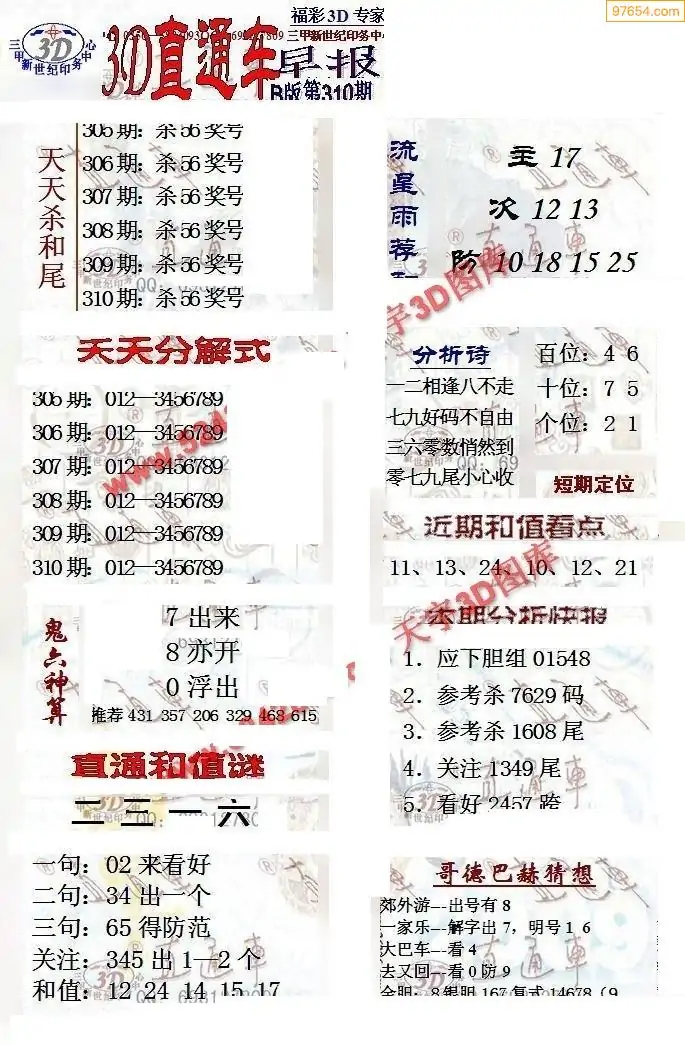 97654.com
福彩3D专家
三甲新世纪印务中心
3D
3D直通车
早报
B版第310期
天天杀和尾
305期：杀56奖号
306期：杀56奖号
307期：杀56奖号
308期：杀56奖号
309期：杀56奖号
310期：杀56奖号
流星雨荐
主 17
次 12 13
防 10 18 15 25
天天分解式
305期：012—3456789
306期：012—3456789
307期：012—3456789
308期：012—3456789
309期：012—3456789
310期：012—3456789
分析诗
一二相逢八不走
七九好码不自由
三六零数悄然到
零七九尾小心收
百位：4 6
十位：7 5
个位：2 1
短期定位
近期和值看点
11、13、24、10、12、21
鬼六神算
7出来
8亦开
0浮出
推荐 431 357 206 329 468 615
本期分析快报
1．应下胆组 01548
2．参考杀 7629 码
3．参考杀 1608 尾
4．关注 1349 尾
5．看好 2457 跨
直通和值谜
二三一六
一句：02来看好
二句：34出一个
三句：65得防范
关注：345出1—2个
和值：12 24 14 15 17
哥德巴赫猜想
郊外游---出号有8
一家乐---解字出7，明号1 6
大巴车---看4
去又回---看0防9
金胆：8银胆167复式14678（9
天宇3D图库
天宇3D图库